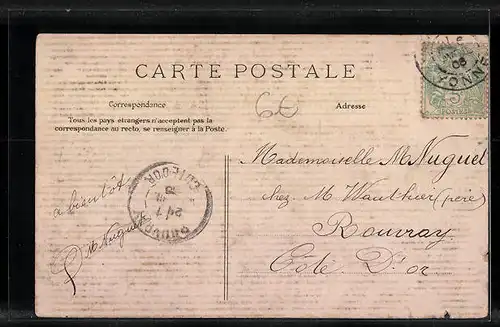 CARTE POSTALE
Correspondance
Adresse
Tous les pays étrangers n'acceptent pas la
correspondance au recto, se renseigner à la Poste.
60
Mademoiselle M Nuguet
chez M. Wauthier (père)
Rouvray
Côte D'or
a bientôt
M Nuguet
ROUVRAY
CÔTE-D'OR
YONNE
08